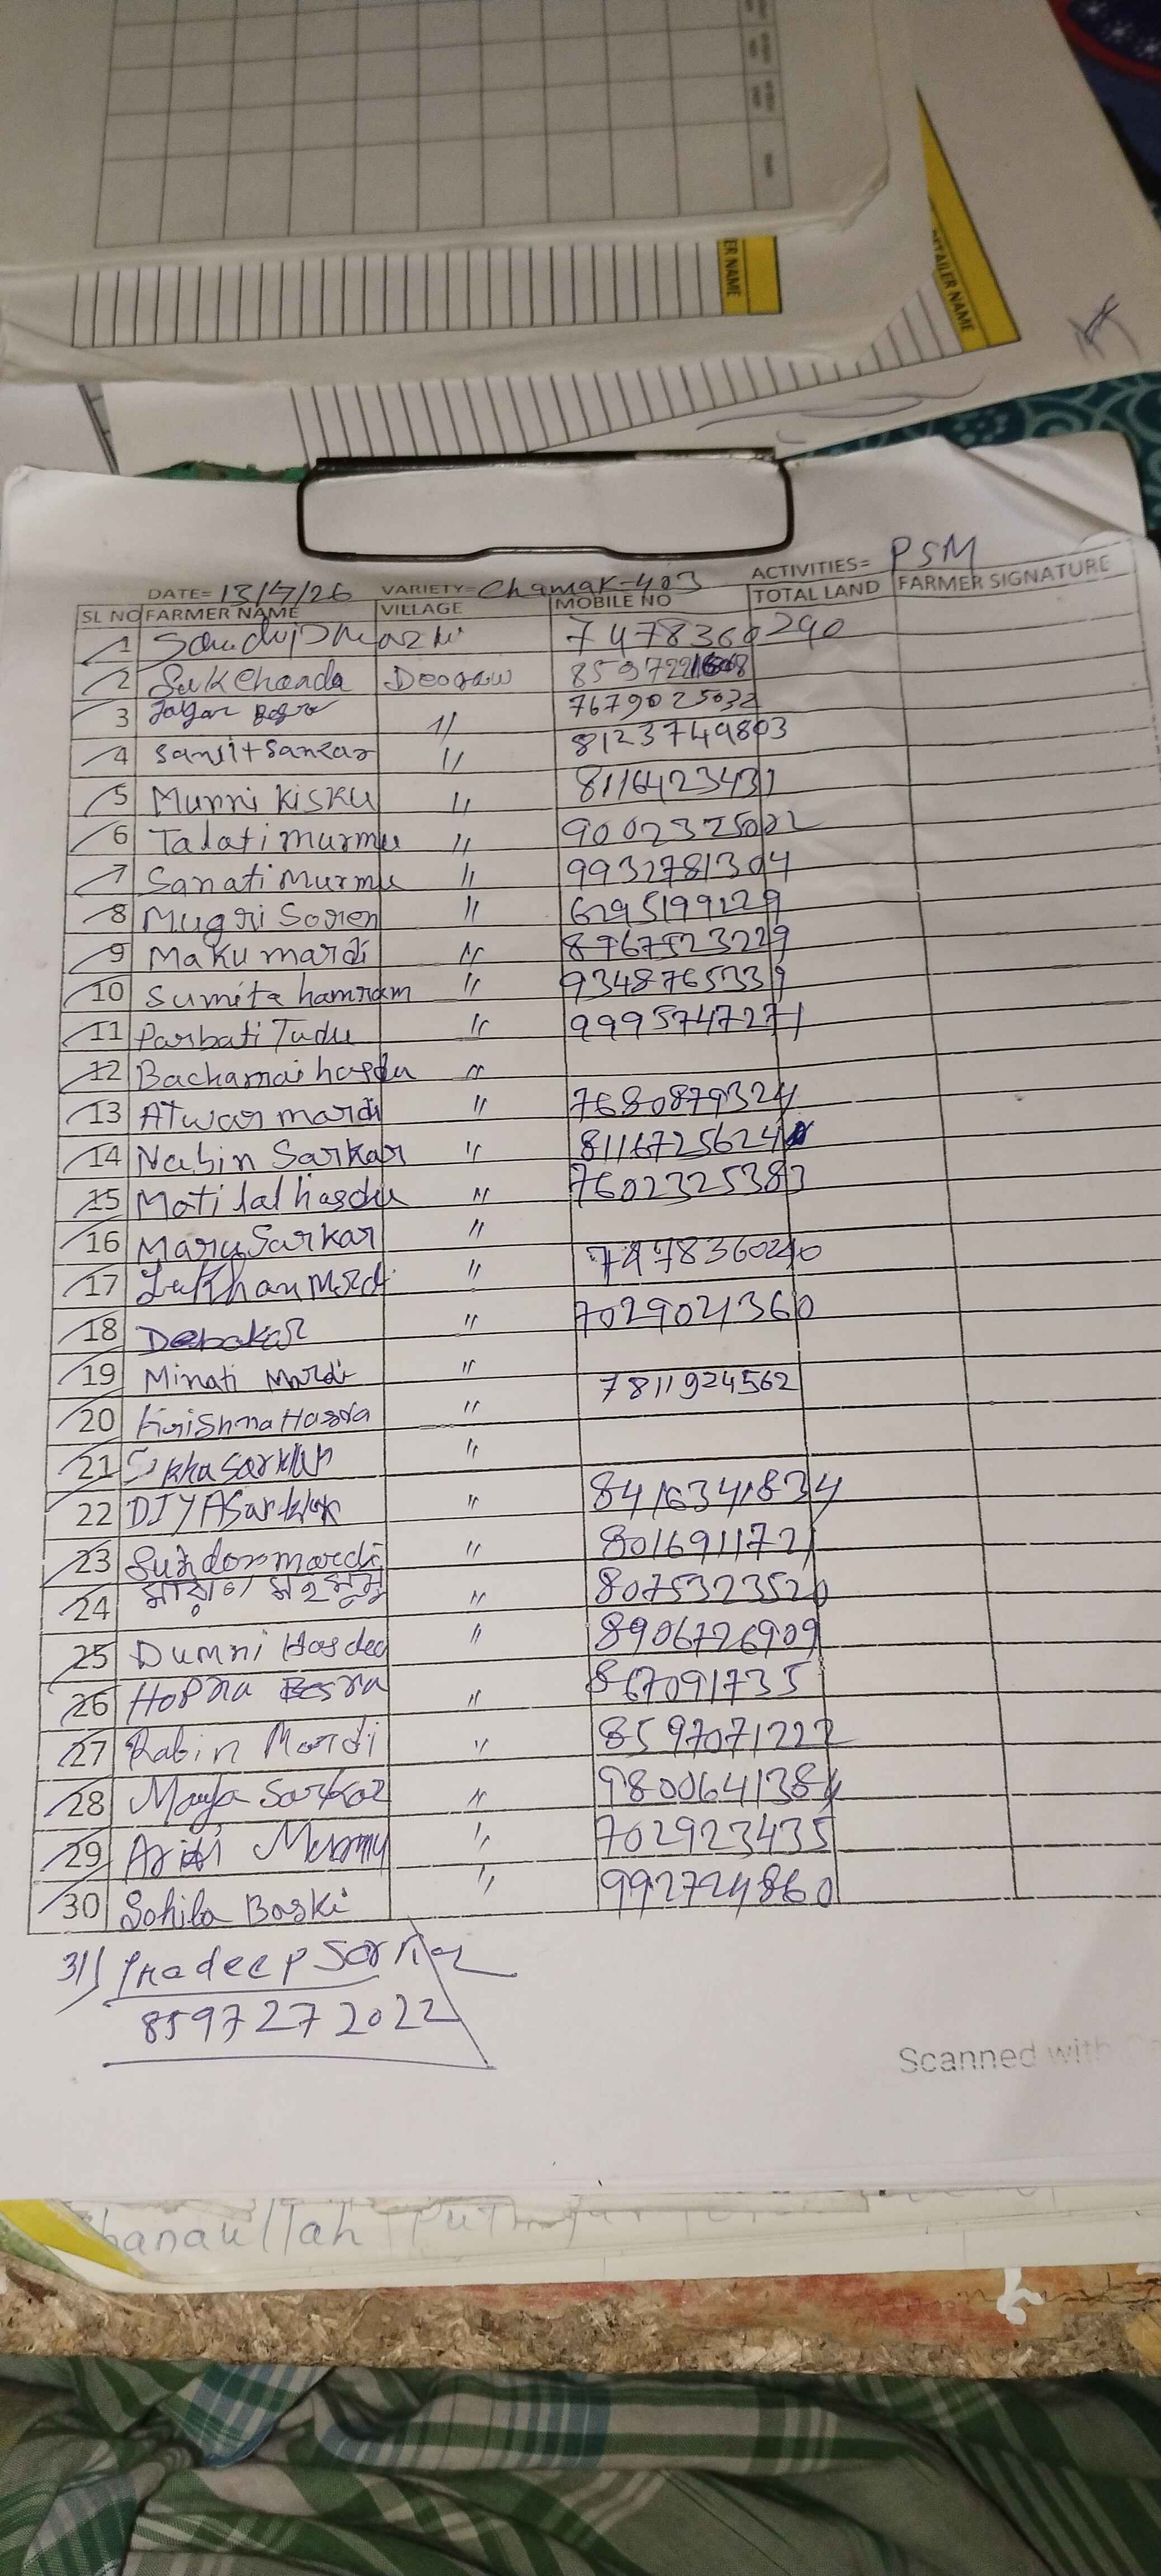 ER NAME
ETAILER NAME
DATE= 13/7/26 VARIETY= Chamak-403 ACTIVITIES= PSM
SL NO FARMER NAME VILLAGE MOBILE NO TOTAL LAND FARMER SIGNATURE
1 7478360290
2 Sukchanda Deogaw
3 " 7679025032
4 Sanjit Sankar " 8123749803
5 Munni Kisku " 8116423431
6 Talati murmu " 9002325022
7 Sanati Murmu " 9932781304
8 Mugri Soren " 6295199229
9 Maku mardi " 8967523229
10 Sumita hamram " 9348765339
11 Parbati Tudu " 9995747271
12 Bachamai hasda "
13 Atwar mardi " 7680879324
14 Nabin Sarkar " 8116725624
15 Moti lal hasda " 7602325383
16 Maru Sarkar "
17 Lukhan Mardi " 7478360240
18 Debakar " 7029021360
19 Minati Mardi "
20 Krishna Hasda " 7811924562
21 Sarkar "
22 DIYA Sarkar " 8416341834
23 mardi " 8016911721
24 " 8075323520
25 Dumni Hasdea " 8906726909
26 Hopna Besra " 867091735
27 Rabin Mardi " 8597071222
28 Maya Sarkar " 9800641384
29 Murmu " 702923435
30 Sohila Baski " 992724860
31) Pradeep Sarkar
8597272022
Scanned with
hanaullah